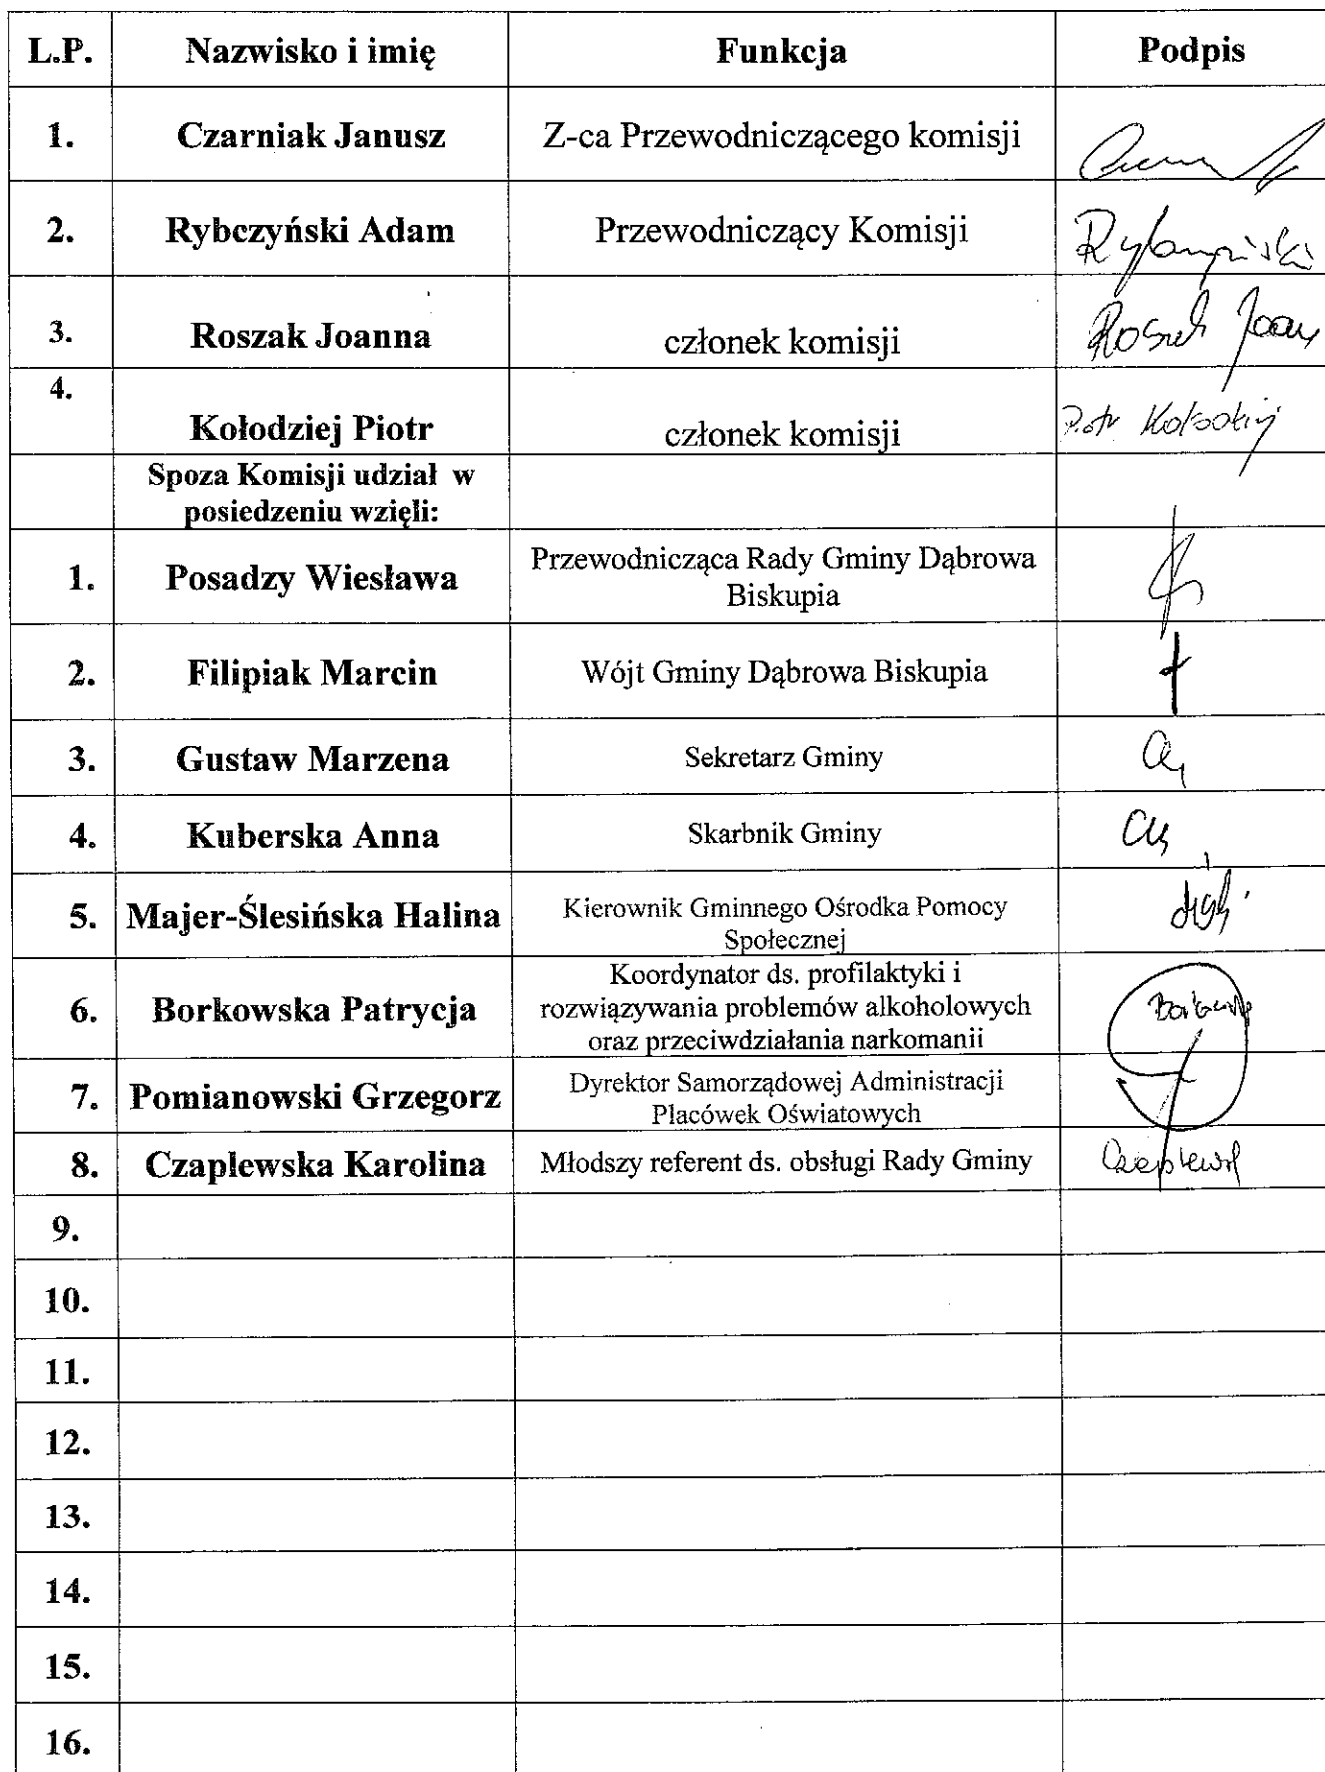 L.P. Nazwisko i imię Funkcja Podpis
1. Czarniak Janusz Z-ca Przewodniczącego komisji
2. Rybczyński Adam Przewodniczący Komisji
3. Roszak Joanna członek komisji
4.
Kołodziej Piotr członek komisji Piotr
Spoza Komisji udział w
posiedzeniu wzięli:
1. Posadzy Wiesława Przewodnicząca Rady Gminy Dąbrowa
Biskupia
2. Filipiak Marcin Wójt Gminy Dąbrowa Biskupia
3. Gustaw Marzena Sekretarz Gminy
4. Kuberska Anna Skarbnik Gminy
5. Majer-Ślesińska Halina Kierownik Gminnego Ośrodka Pomocy
Społecznej
Koordynator ds. profilaktyki i
6. Borkowska Patrycja rozwiązywania problemów alkoholowych
oraz przeciwdziałania narkomanii
7. Pomianowski Grzegorz Dyrektor Samorządowej Administracji
Placówek Oświatowych
8. Czaplewska Karolina Młodszy referent ds. obsługi Rady Gminy
9.
10.
11.
12.
13.
14.
15.
16.